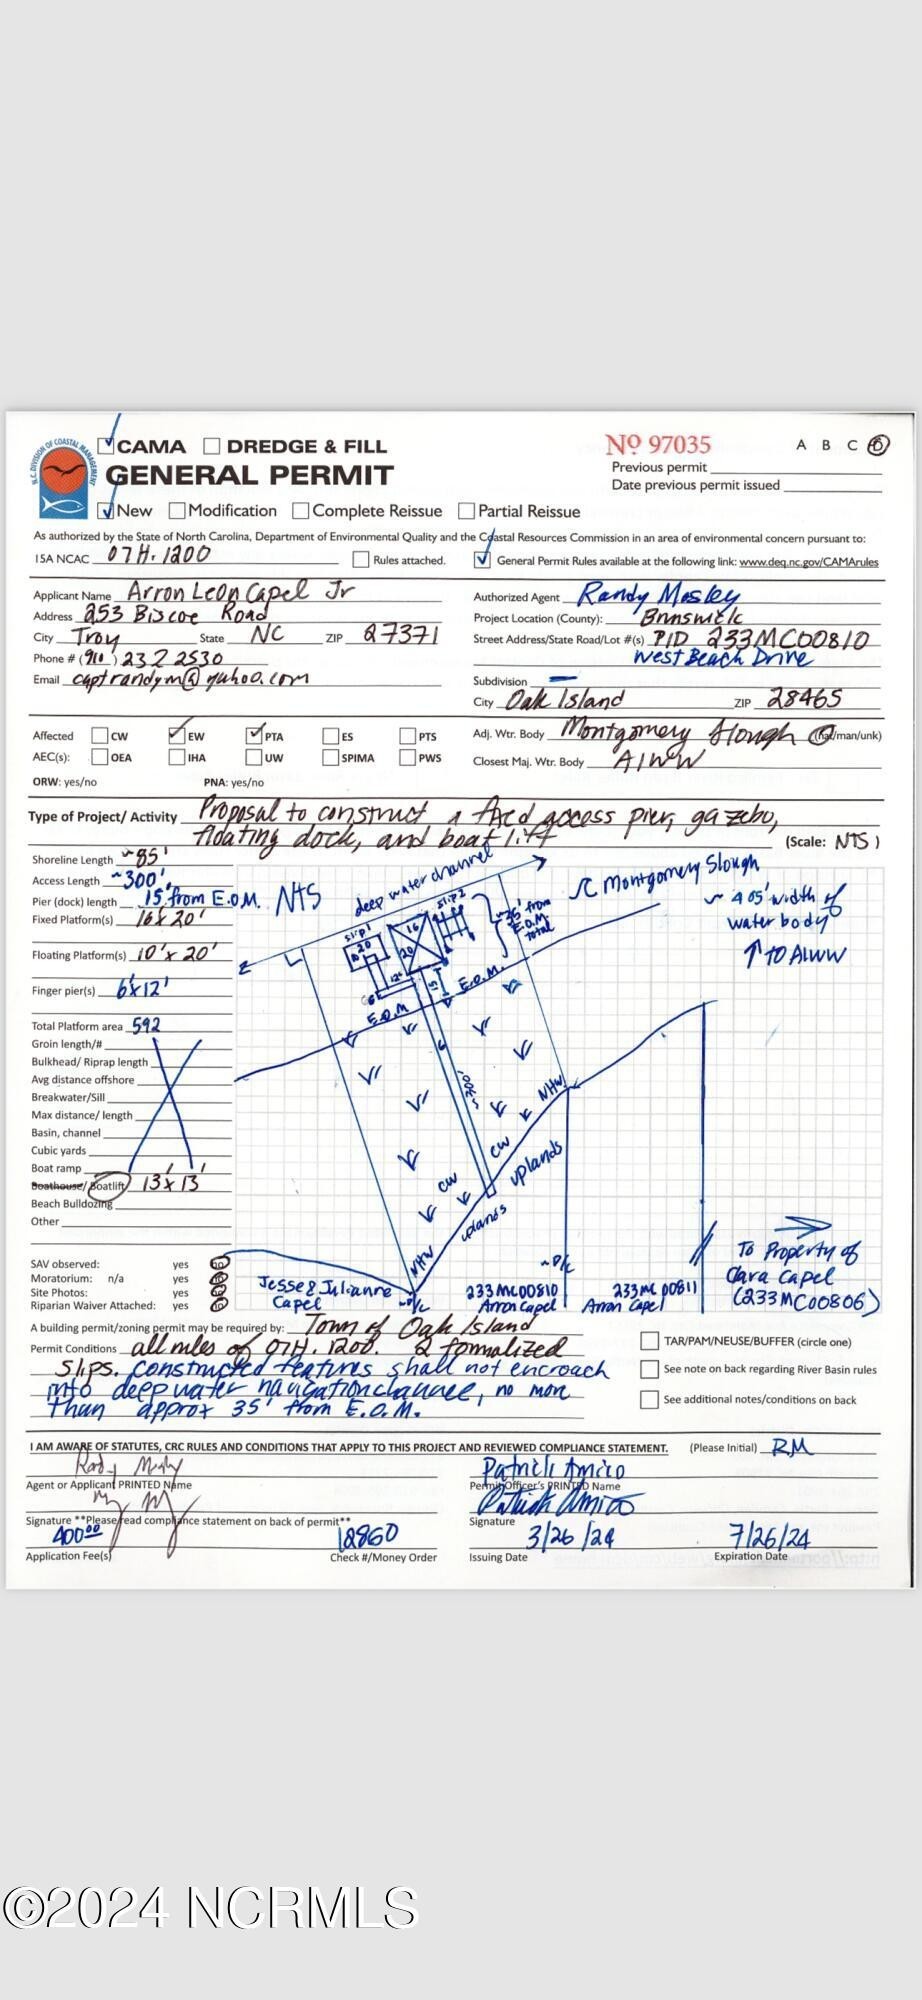 CAMA DREDGE & FILL
GENERAL PERMIT
N.C. DIVISION OF COASTAL MANAGEMENT
Nº 97035 A B C D
Previous permit
Date previous permit issued
New Modification Complete Reissue Partial Reissue
As authorized by the State of North Carolina, Department of Environmental Quality and the Coastal Resources Commission in an area of environmental concern pursuant to:
15A NCAC 07H.1200 Rules attached. General Permit Rules available at the following link: www.deq.nc.gov/CAMArules
Applicant Name Arron Leon Capel Jr
Address 253 Biscoe Road
City Troy State NC ZIP 27371
Phone # (910) 232 2530
Email captrandym@yahoo.com
Authorized Agent Randy Mosley
Project Location (County): Brunswick
Street Address/State Road/Lot #(s) PID 233MC00810
West Beach Drive
Subdivision —
City Oak Island ZIP 28465
Affected CW EW PTA ES PTS
AEC(s): OEA IHA UW SPIMA PWS
ORW: yes/no PNA: yes/no
Adj. Wtr. Body Montgomery Slough (nat/man/unk)
Closest Maj. Wtr. Body AIWW
Type of Project/ Activity Proposal to construct a fixed access pier, gazebo,
floating dock, and boat lift (Scale: NTS )
Shoreline Length ~85'
Access Length ~300'
Pier (dock) length 15' from E.O.M.
Fixed Platform(s) 16'x 20'
Floating Platform(s) 10'x 20'
Finger pier(s) 6'x12'
Total Platform area 592
Groin length/#
Bulkhead/ Riprap length
Avg distance offshore
Breakwater/Sill
Max distance/ length
Basin, channel
Cubic yards
Boat ramp
Boathouse/ Boatlift 13'x 13'
Beach Bulldozing
Other
SAV observed: yes
Moratorium: n/a yes
Site Photos: yes
Riparian Waiver Attached: yes
NTS
deep water channel
Montgomery Slough
~ 405' width of
water body
↑ TO AIWW
slip 1
slip 2
20
16
20
12'
6'
15'
~35' from
E.O.M.
total
E.O.M.
E.O.M
6
~300'
NHW
CW
uplands
CW
uplands
NHW
Jesse & Julianne
Capel
~P/L
~P/L
233MC00810
Arron Capel
233MC00811
Arron Capel
To Property of
Clara Capel
(233MC00806)
A building permit/zoning permit may be required by: Town of Oak Island
Permit Conditions all rules of 07H.1200. 2 formalized
slips. Constructed features shall not encroach
into deep water navigation channel, no more
than approx 35' from E.O.M.
TAR/PAM/NEUSE/BUFFER (circle one)
See note on back regarding River Basin rules
See additional notes/conditions on back
I AM AWARE OF STATUTES, CRC RULES AND CONDITIONS THAT APPLY TO THIS PROJECT AND REVIEWED COMPLIANCE STATEMENT. (Please Initial) RM
Randy Mosley
Agent or Applicant PRINTED Name
Patrick Amico
Permit Officer's PRINTED Name
Signature **Please read compliance statement on back of permit**
Patrick Amico
Signature
400.00 12860
Application Fee(s) Check #/Money Order
3/26/24 7/26/24
Issuing Date Expiration Date
©2024 NCRMLS